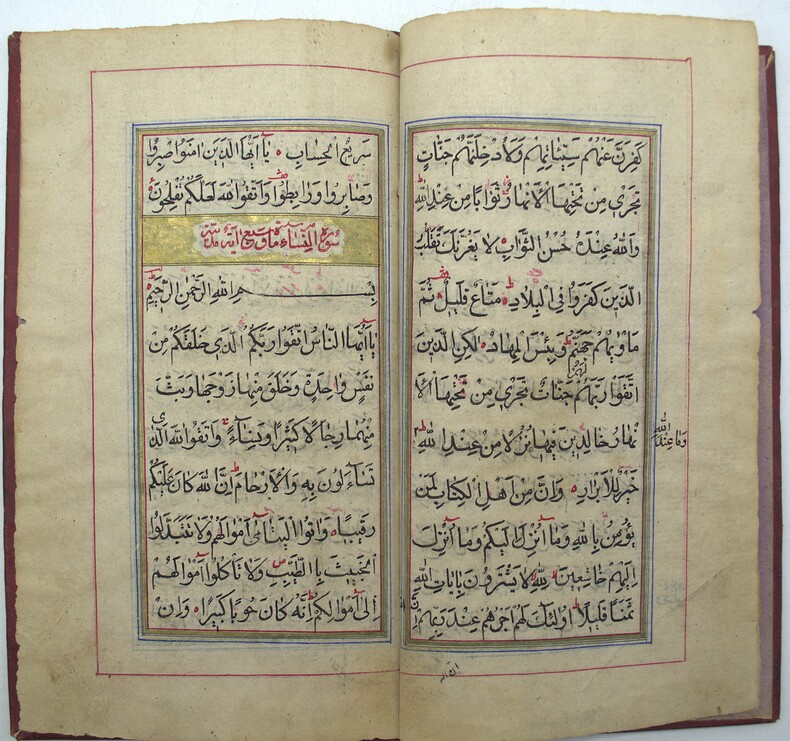 كَفِّرَنَّ عَنْهُمْ سَيِّئَاتِهِمْ وَلَاُدْخِلَنَّهُمْ جَنَّاتٍ
تَجْرِي مِنْ تَحْتِهَا الْاَنْهَارُ ثَوَابًا مِنْ عِنْدِ اللّٰهِ
وَاللّٰهُ عِنْدَهُ حُسْنُ الثَّوَابِ لَا يَغُرَّنَّكَ تَقَلُّبُ
الَّذِينَ كَفَرُوا فِي الْبِلَادِ مَتَاعٌ قَلِيلٌ ثُمَّ
مَاْوٰيهُمْ جَهَنَّمُ وَبِئْسَ الْمِهَادُ لٰكِنِ الَّذِينَ
اتَّقَوْا رَبَّهُمْ لَهُمْ جَنَّاتٌ تَجْرِي مِنْ تَحْتِهَا الْاَ
نْهَارُ خَالِدِينَ فِيهَا نُزُلًا مِنْ عِنْدِ اللّٰهِ
وَمَا عِنْدَ اللّٰهِ
خَيْرٌ لِلْاَبْرَارِ وَاِنَّ مِنْ اَهْلِ الْكِتَابِ لَمَنْ
يُؤْمِنُ بِاللّٰهِ وَمَا اُنْزِلَ اِلَيْكُمْ وَمَا اُنْزِلَ
اِلَيْهِمْ خَاشِعِينَ لِلّٰهِ لَا يَشْتَرُونَ بِاٰيَاتِ اللّٰهِ
ثَمَنًا قَلِيلًا اُولٰئِكَ لَهُمْ اَجْرُهُمْ عِنْدَ رَبِّهِمْ اِنَّ
سَرِيعُ الْحِسَابِ يَا اَيُّهَا الَّذِينَ اٰمَنُوا صْبِرُوا
وَصَابِرُوا وَرَابِطُوا وَاتَّقُوا اللّٰهَ لَعَلَّكُمْ تُفْلِحُونَ
سورة النساء مائة وسبع اية
بِسْمِ اللّٰهِ الرَّحْمٰنِ الرَّحِيمِ
يَا اَيُّهَا النَّاسُ اتَّقُوا رَبَّكُمُ الَّذِي خَلَقَكُمْ مِنْ
نَفْسٍ وَاحِدَةٍ وَخَلَقَ مِنْهَا زَوْجَهَا وَبَثَّ
مِنْهُمَا رِجَالًا كَثِيرًا وَنِسَاءً وَاتَّقُوا اللّٰهَ الَّذِي
تَسَاءَلُونَ بِهِ وَالْاَرْحَامَ اِنَّ اللّٰهَ كَانَ عَلَيْكُمْ
رَقِيبًا وَاٰتُوا الْيَتَامٰى اَمْوَالَهُمْ وَلَا تَتَبَدَّلُوا
الْخَبِيثَ بِالطَّيِّبِ وَلَا تَاْكُلُوا اَمْوَالَهُمْ
اِلٰى اَمْوَالِكُمْ اِنَّهُ كَانَ حُوبًا كَبِيرًا وَاِنْ